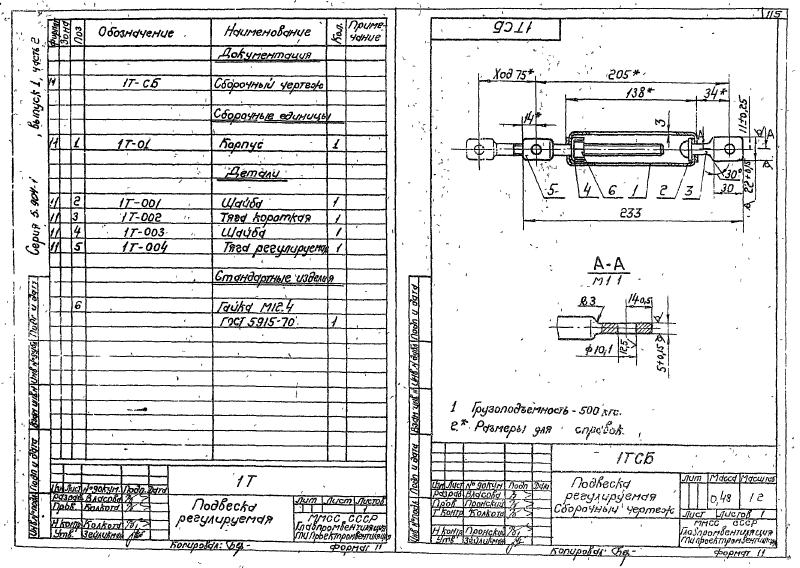 115
Серия 5.904-1 Выпуск 1, часть 2
Формат Зона Поз Обозначение Наименование Кол. Примечание
Документация
11 1Т-СБ Сборочный чертеж
Сборочные единицы
11 1 1Т-01 Корпус 1
Детали
11 2 1Т-001 Шайба 1
11 3 1Т-002 Тяга короткая 1
11 4 1Т-003 Шайба 1
11 5 1Т-004 Тяга регулируемая 1
Стандартные изделия
6 Гайка М12.4
ГОСТ 5915-70 1
Изм Лист № докум. Подп. Дата
Разраб. Власова
Пров. Колкота
Н.контр Колкота
Утв.
1Т
Подвеска
регулируемая
Лит Лист Листов
1
ММСС СССР
Главпромвентиляция
Копировал:
Формат 11
Инв.№ подл Подп и дата Взам инв.№ Инв № дубл Подп и дата
1ТСБ
Ход 75* 205*
138* 34*
14* 3 11±0,25
5 4 6 1 2 3
30° 30
233
А-А
М 1:1
14 0,5
ф10,1 12,5
1 Грузоподъемность - 500 кгс.
2* Размеры для справок.
1ТСБ
Изм Лист № докум Подп Дата
Разраб Власова
Пров. Пронский
Т контр Колкота
Н контр Пронский
Утв.
Подвеска
регулируемая
Сборочный чертеж
Лит Масса Масштаб
0,48 1:2
Лист Листов 1
ММСС СССР
Главпромвентиляция
Копировал:
Формат 11
Инв № подл Подп и дата Взам инв № Инв № дубл Подп и дата